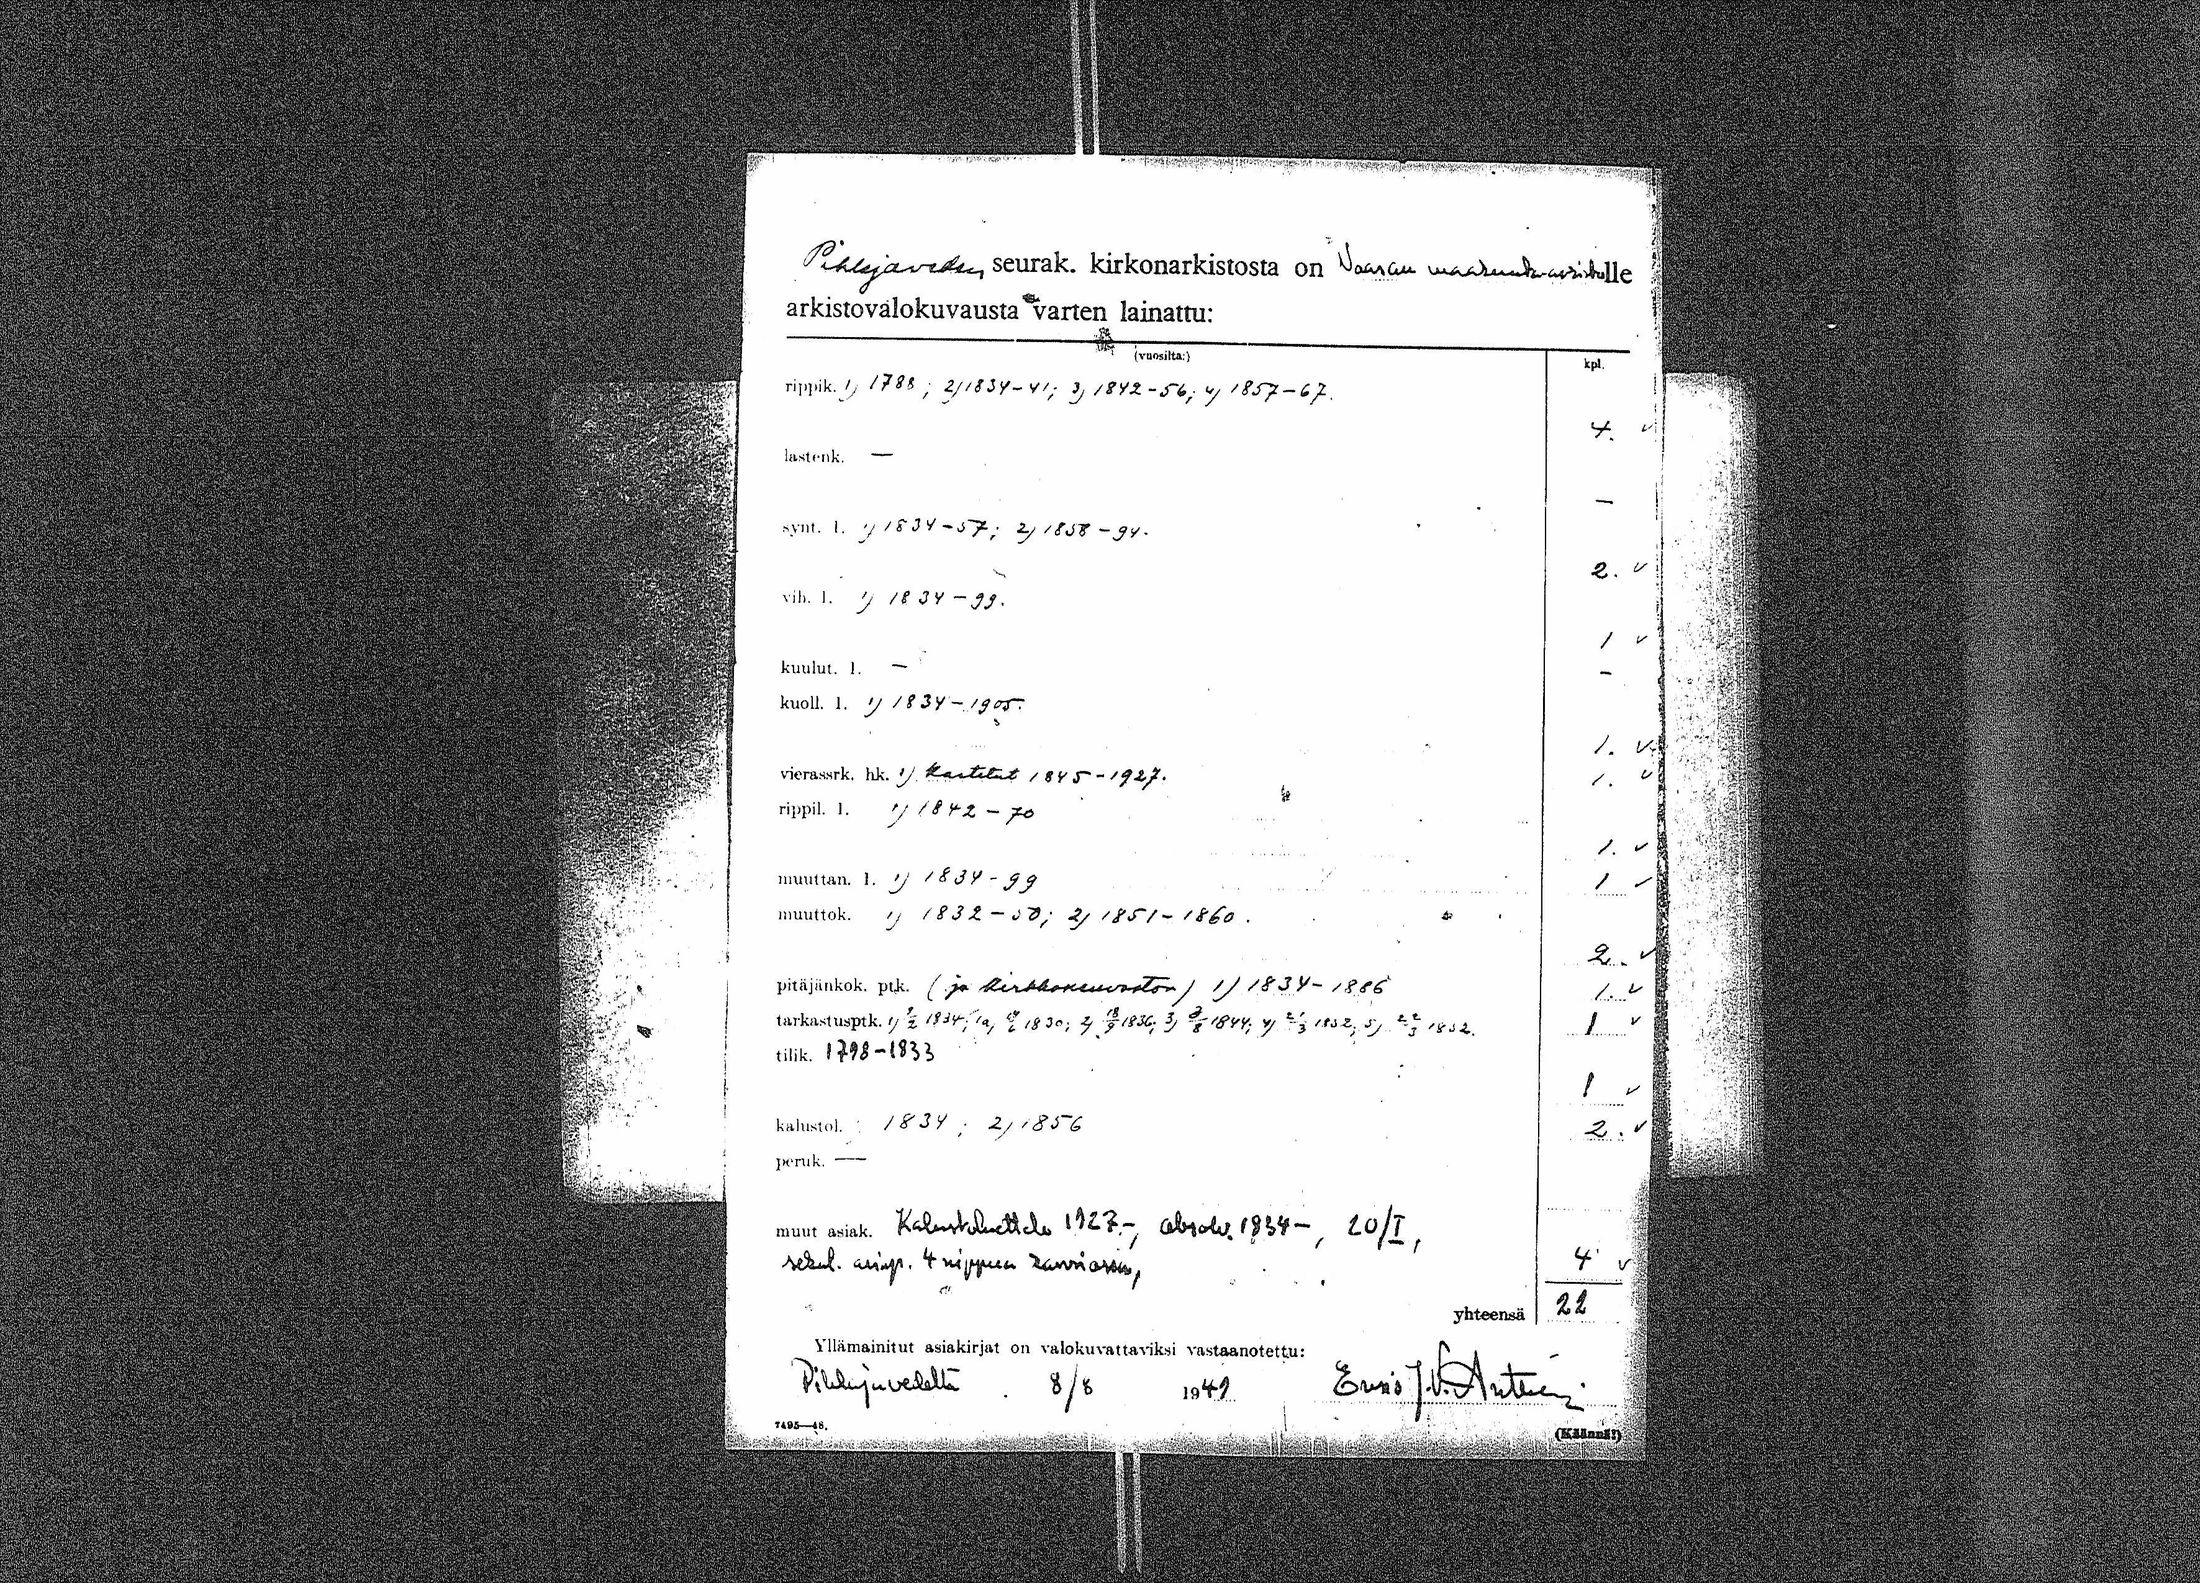 Pihlajaveden seurak. kirkonarkistosta on Vaasan maakunta-arkistolle
arkistovalokuvausta varten lainattu:
(vuosilta:) kpl.
rippik. 1) 1788; 2) 1834-41; 3) 1842-56; 4) 1857-67.
4.
lastenk. —
—
synt. l. 1) 1834-57; 2) 1858-94.
2.
vih. l. 1) 1834-99.
1
kuulut. l. — -
kuoll. l. 1) 1834-1905.
1.
vierassrk. hk. 1) Kastetut 1845-1927. 1.
rippil. l. 1) 1842-70
1.
muuttan. l. 1) 1834-99 1
muuttok. 1) 1832-50; 2) 1851-1860.
2.
pitäjänkok. ptk. (ja kirkkoneuvoston) 1) 1834-1886 1.
tarkastusptk. 1) 1834; 1a) 1830; 2) 18/9 1836; 3) 1844; 4) 21/3 1852; 5) 22/3 1852. 1
tilik. 1798-1833
1
kalustol. 1834; 2) 1856 2.
peruk. —
muut asiak. Kalustoluettelo 1927-, absolv. 1834-, 20/I,
sekal. asiap. 4 nippua 4
yhteensä 22
Yllämainitut asiakirjat on valokuvattaviksi vastaanotettu:
Pihlajavedeltä 8/8 1949
7495—48. (Käännä!)